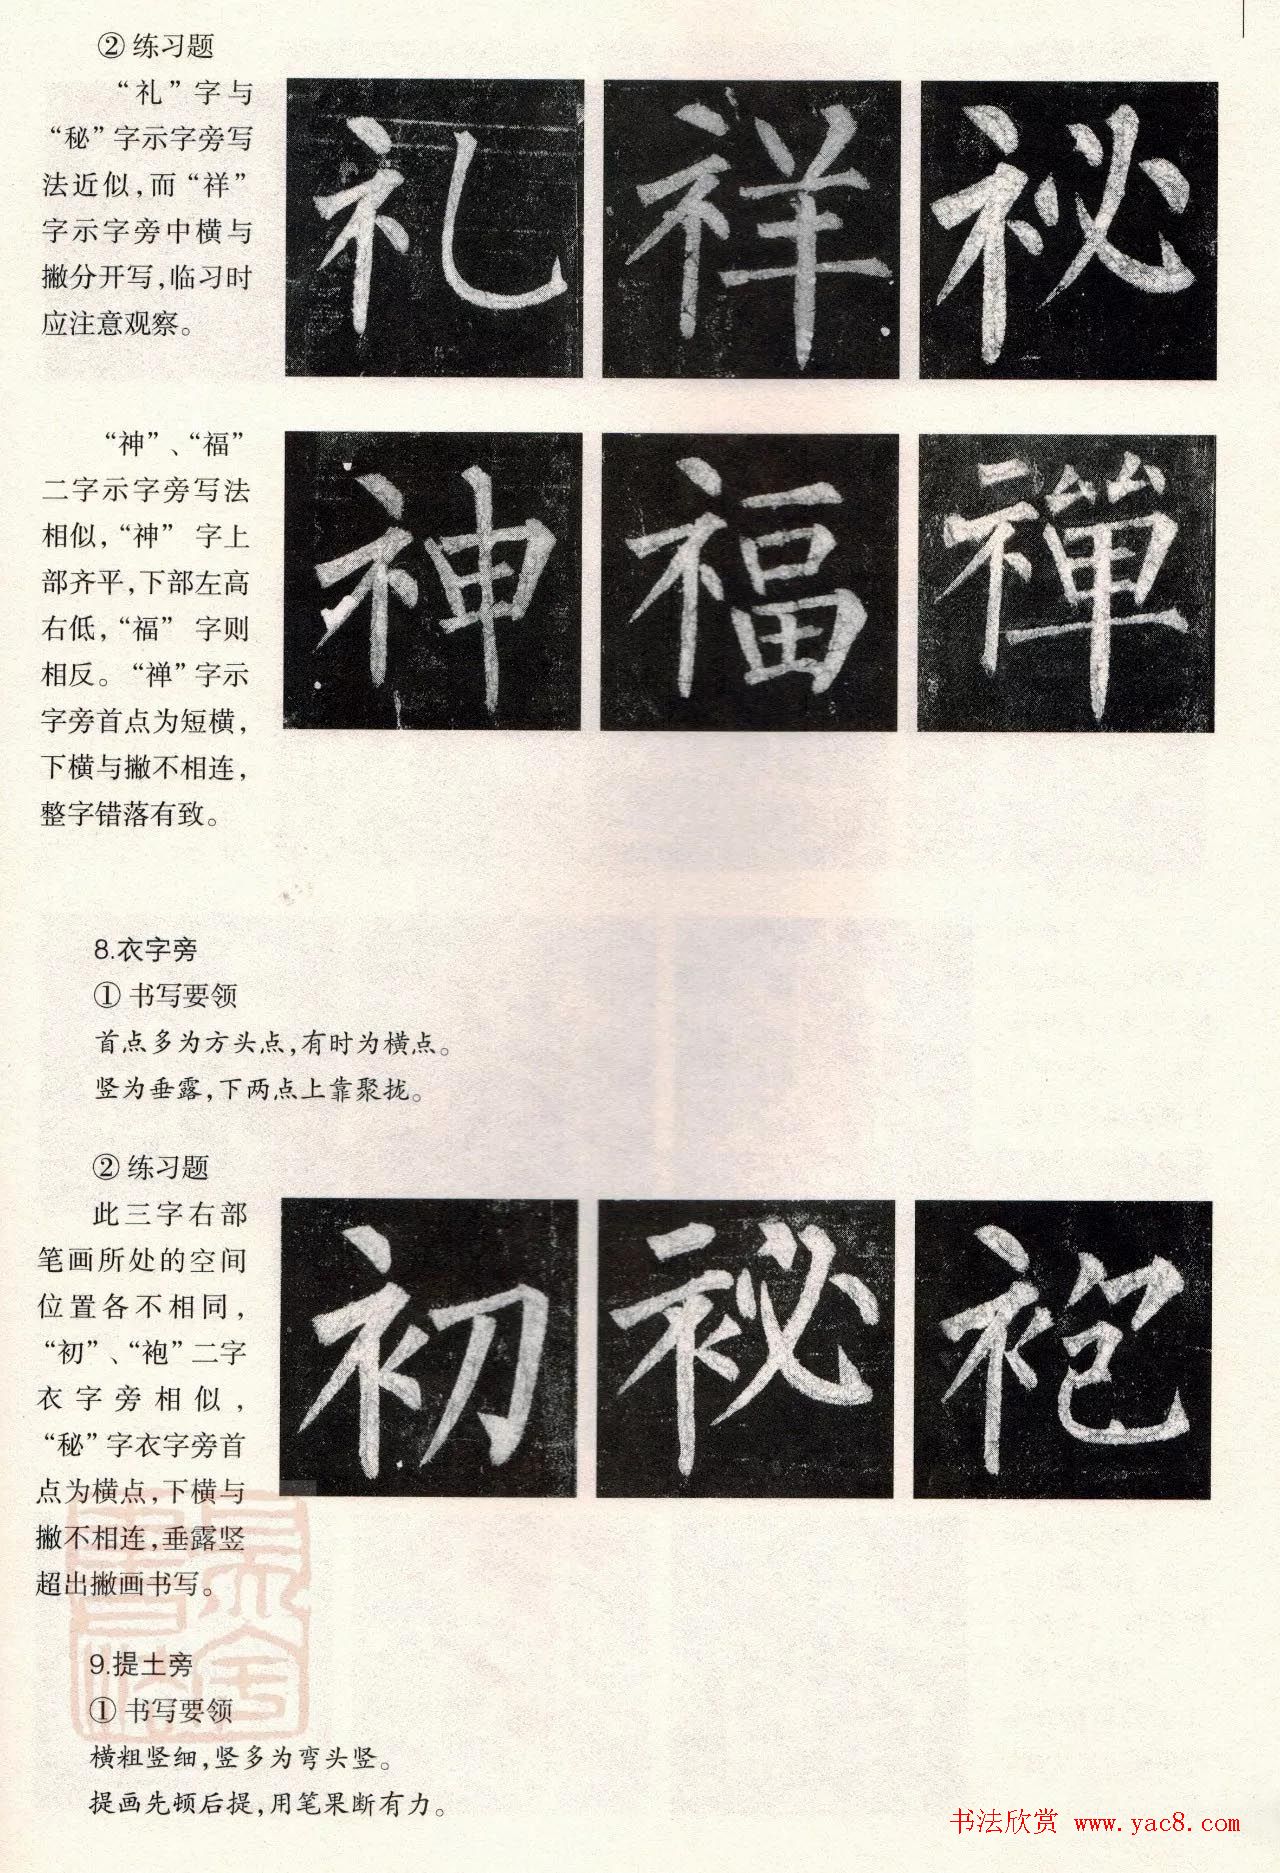 ② 练习题
“礼”字与
“秘”字示字旁写
法近似，而“祥”
字示字旁中横与
撇分开写，临习时
应注意观察。
礼 祥 祕
“神”、“福”
二字示字旁写法
相似，“神” 字上
部齐平，下部左高
右低，“福” 字则
相反。“禅”字示
字旁首点为短横，
下横与撇不相连，
整字错落有致。
神 福 禪
8.衣字旁
① 书写要领
首点多为方头点，有时为横点。
竖为垂露，下两点上靠聚拢。
② 练习题
此三字右部
笔画所处的空间
位置各不相同，
“初”、“袍”二字
衣字旁相似，
“秘”字衣字旁首
点为横点，下横与
撇不相连，垂露竖
超出撇画书写。
初 袐 袍
9.提土旁
① 书写要领
横粗竖细，竖多为弯头竖。
提画先顿后提，用笔果断有力。
书法欣赏 www.yac8.com